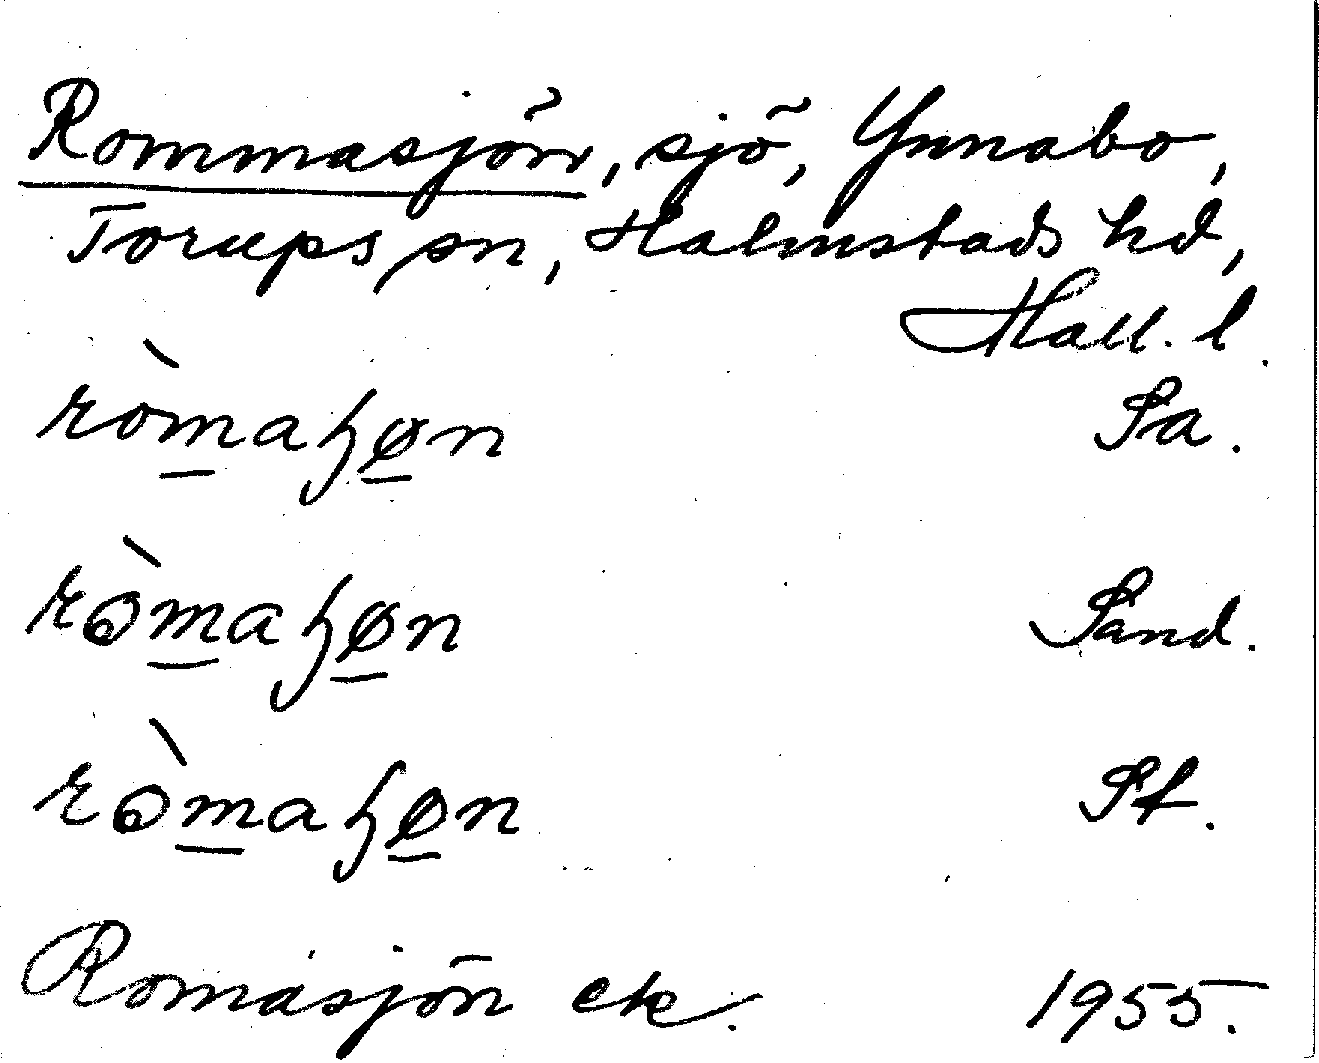 Rommasjön, sjö, Ynnabo,
Torups sn, Halmstads hd,
Hall. l.
ròm̲aɧø̲n Sa.
rɔ̀m̲aɧø̲n Sand.
rɔ̀m̲aɧø̲n Sf.
Romasjön ek. 1955.